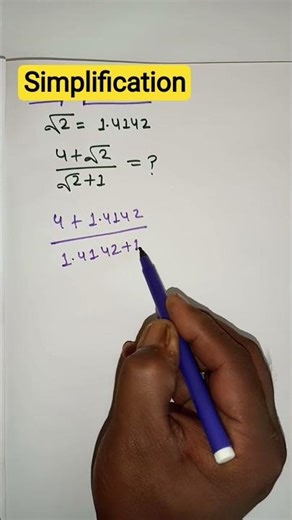 Simplification
√2 = 1.4142
4+√2
√2+1
= ?
4 + 1.4142
1.4142+1